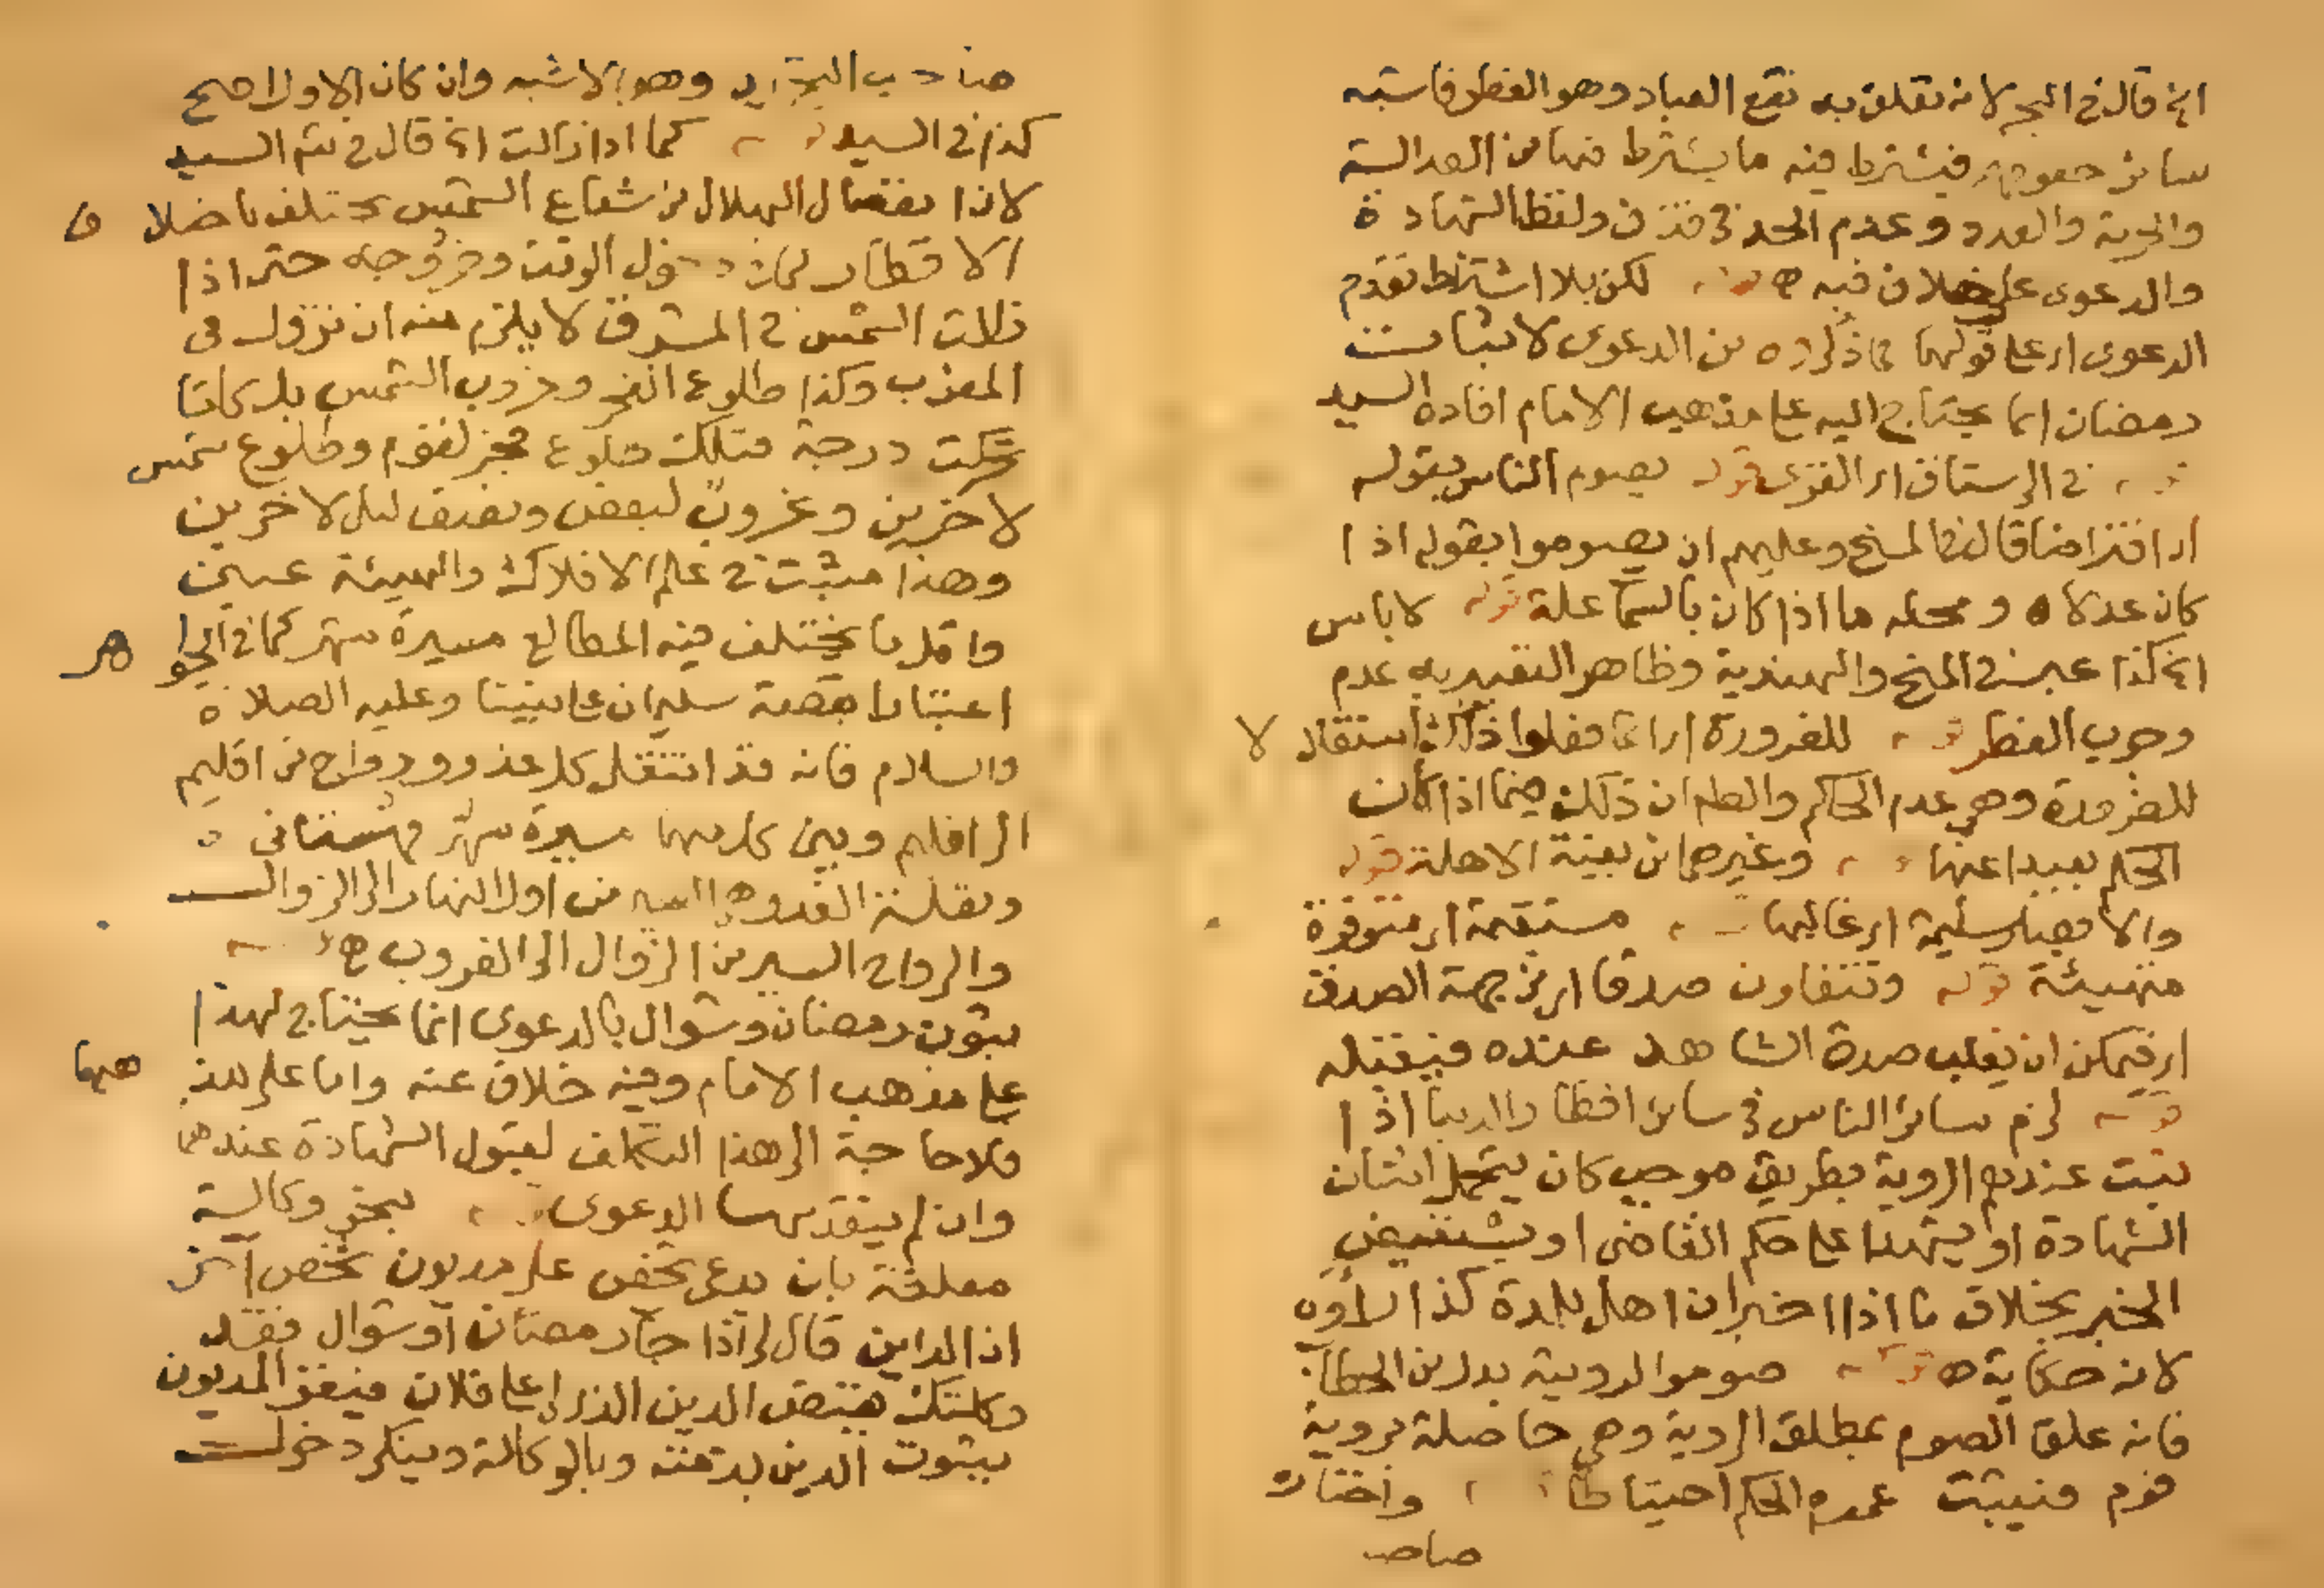 الخ قال في البحر لانه تعلق به نفع العباد وهو الفطر فاشبه
سائر حقوقهم فيشترط فيه ما يشترط فيها من العدالة
والحرية والعدد وعدم الحد في قذف ولفظ الشهادة
والدعوى على خلاف فيه ه قوله لكن بلا اشتراط تقدم
الدعوى اي على قولهما وما ذكروه من الدعوى لاثبات
رمضان انما يحتاج اليه على مذهب الامام افاده السيد
في الرستاق اي القرى قوله يصوم الناس بقوله
اي افتراضا قال في المنح وعليهم ان يصوموا بقوله اذا
كان عدلا ه ومحله ما اذا كان بالسما علة قوله لا باس
الخ كذا عبر في المنح والهندية وظاهر التعبير به عدم
وجوب الفطر قوله للضرورة اي انما فعلوا ذلك استقلالا
للضرورة وهي عدم الحاكم والظاهر ان ذلك فيما اذا كان
الحاكم بعيدا عنها وغيرهما من بقية الاهلة قوله
والا فصابر سليمة اي غالبها مستقيمة اي متوفرة
متهيئة قوله وتتفاوت صدقا اي من جهة الصدق
اي فيمكن ان يغلب صدق الشاهد عنده فيقبله
قوله لزم سائر الناس في سائر اقطار الدنيا اذا
ثبت عندهم الروية بطريق موجب كان يتحمل اثنان
الشهادة او يشهدا على حكم القاضي او يستفيض
الخبر بخلاف ما اذا اخبرا ان اهل بلدة كذا راوه
لانه حكاية ه قوله صوموا لرويته بدل من الخطاب
فانه علق الصوم بمطلق الروية وهي حاصلة بروية
قوم فيثبت عموم الحكم احتياطا واختاره
صاحب
صاحب التجريد وهو الاشبه وان كان الاول اصح
كذا في السيد قوله كما اذا زالت الخ قال في شم السيد
لان انفصال الهلال من شعاع الشمس يختلف باختلاف
الاقطار كما في دخول الوقت وخروجه حتى اذا
زالت الشمس في المشرق لا يلزم منه ان تزول في
المغرب وكذا طلوع الفجر وغروب الشمس بل كلما
تحركت درجة فتلك طلوع فجر لقوم وطلوع شمس
لاخرين وغروب لبعض ونصف ليل لاخرين
وهذا مثبت في علم الافلاك والهيئة عيني
واقل ما يختلف فيه المطالع مسيرة شهر كما في الجواهر
اعتبارا بقصة سليمان على نبينا وعليه الصلاة
والسلام فانه قد انتقل كل غدو ورواح من اقليم
الى اقليم وبين كل منهما مسيرة شهر قهستاني ه
وبقلته الغدو هو السير من اول النهار الى الزوال
والرواح السير من الزوال الى الغروب ه قوله
ثبوت رمضان وشوال بالدعوى انما يحتاج لهذا
على مذهب الامام وفيه خلاف عنه واما على مذهبهما
فلا حاجة الى هذا التكلف لقبول الشهادة عندهما
وان لم يتقدمها الدعوى بنحو وكالة
معلقة بان يدعي شخص على مديون شخص اخر
ان الداين قال لي اذا جا رمضان او شوال فقد
وكلتك بقبض الدين الذي لي على فلان فيقر المديون
بثبوت الدين بذمته وبالوكالة وينكر دخول